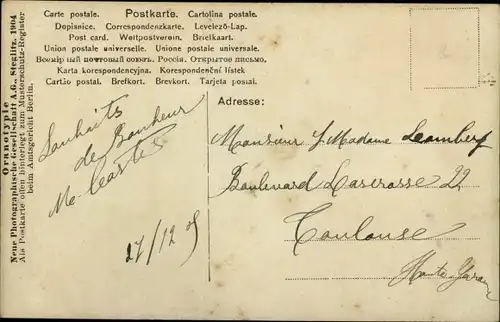 Carte postale. Postkarte. Cartolina postale.
Dopisnice. Correspondenzkarte. Levelező-Lap.
Post card. Weltpostverein. Briefkaart.
Union postale universelle. Unione postale universale.
Всемірный почтовый союзъ. Россія. Открытое письмо.
Karta korespondencyjna. Korespondenční lístek
Cartão postal. Brefkort. Brevkort. Tarjeta postal.
Oranotypie
Neue Photographische Gesellschaft A.G., Steglitz. 1904
Als Postkarte offen hinterlegt zum Musterschutz-Register
beim Amtsgericht Berlin.
Souhaits
de Bonheur
27/12 05
Adresse:
Monsieur & Madame
Boulevard Lascrosse 22
Toulouse
Haute Garonne